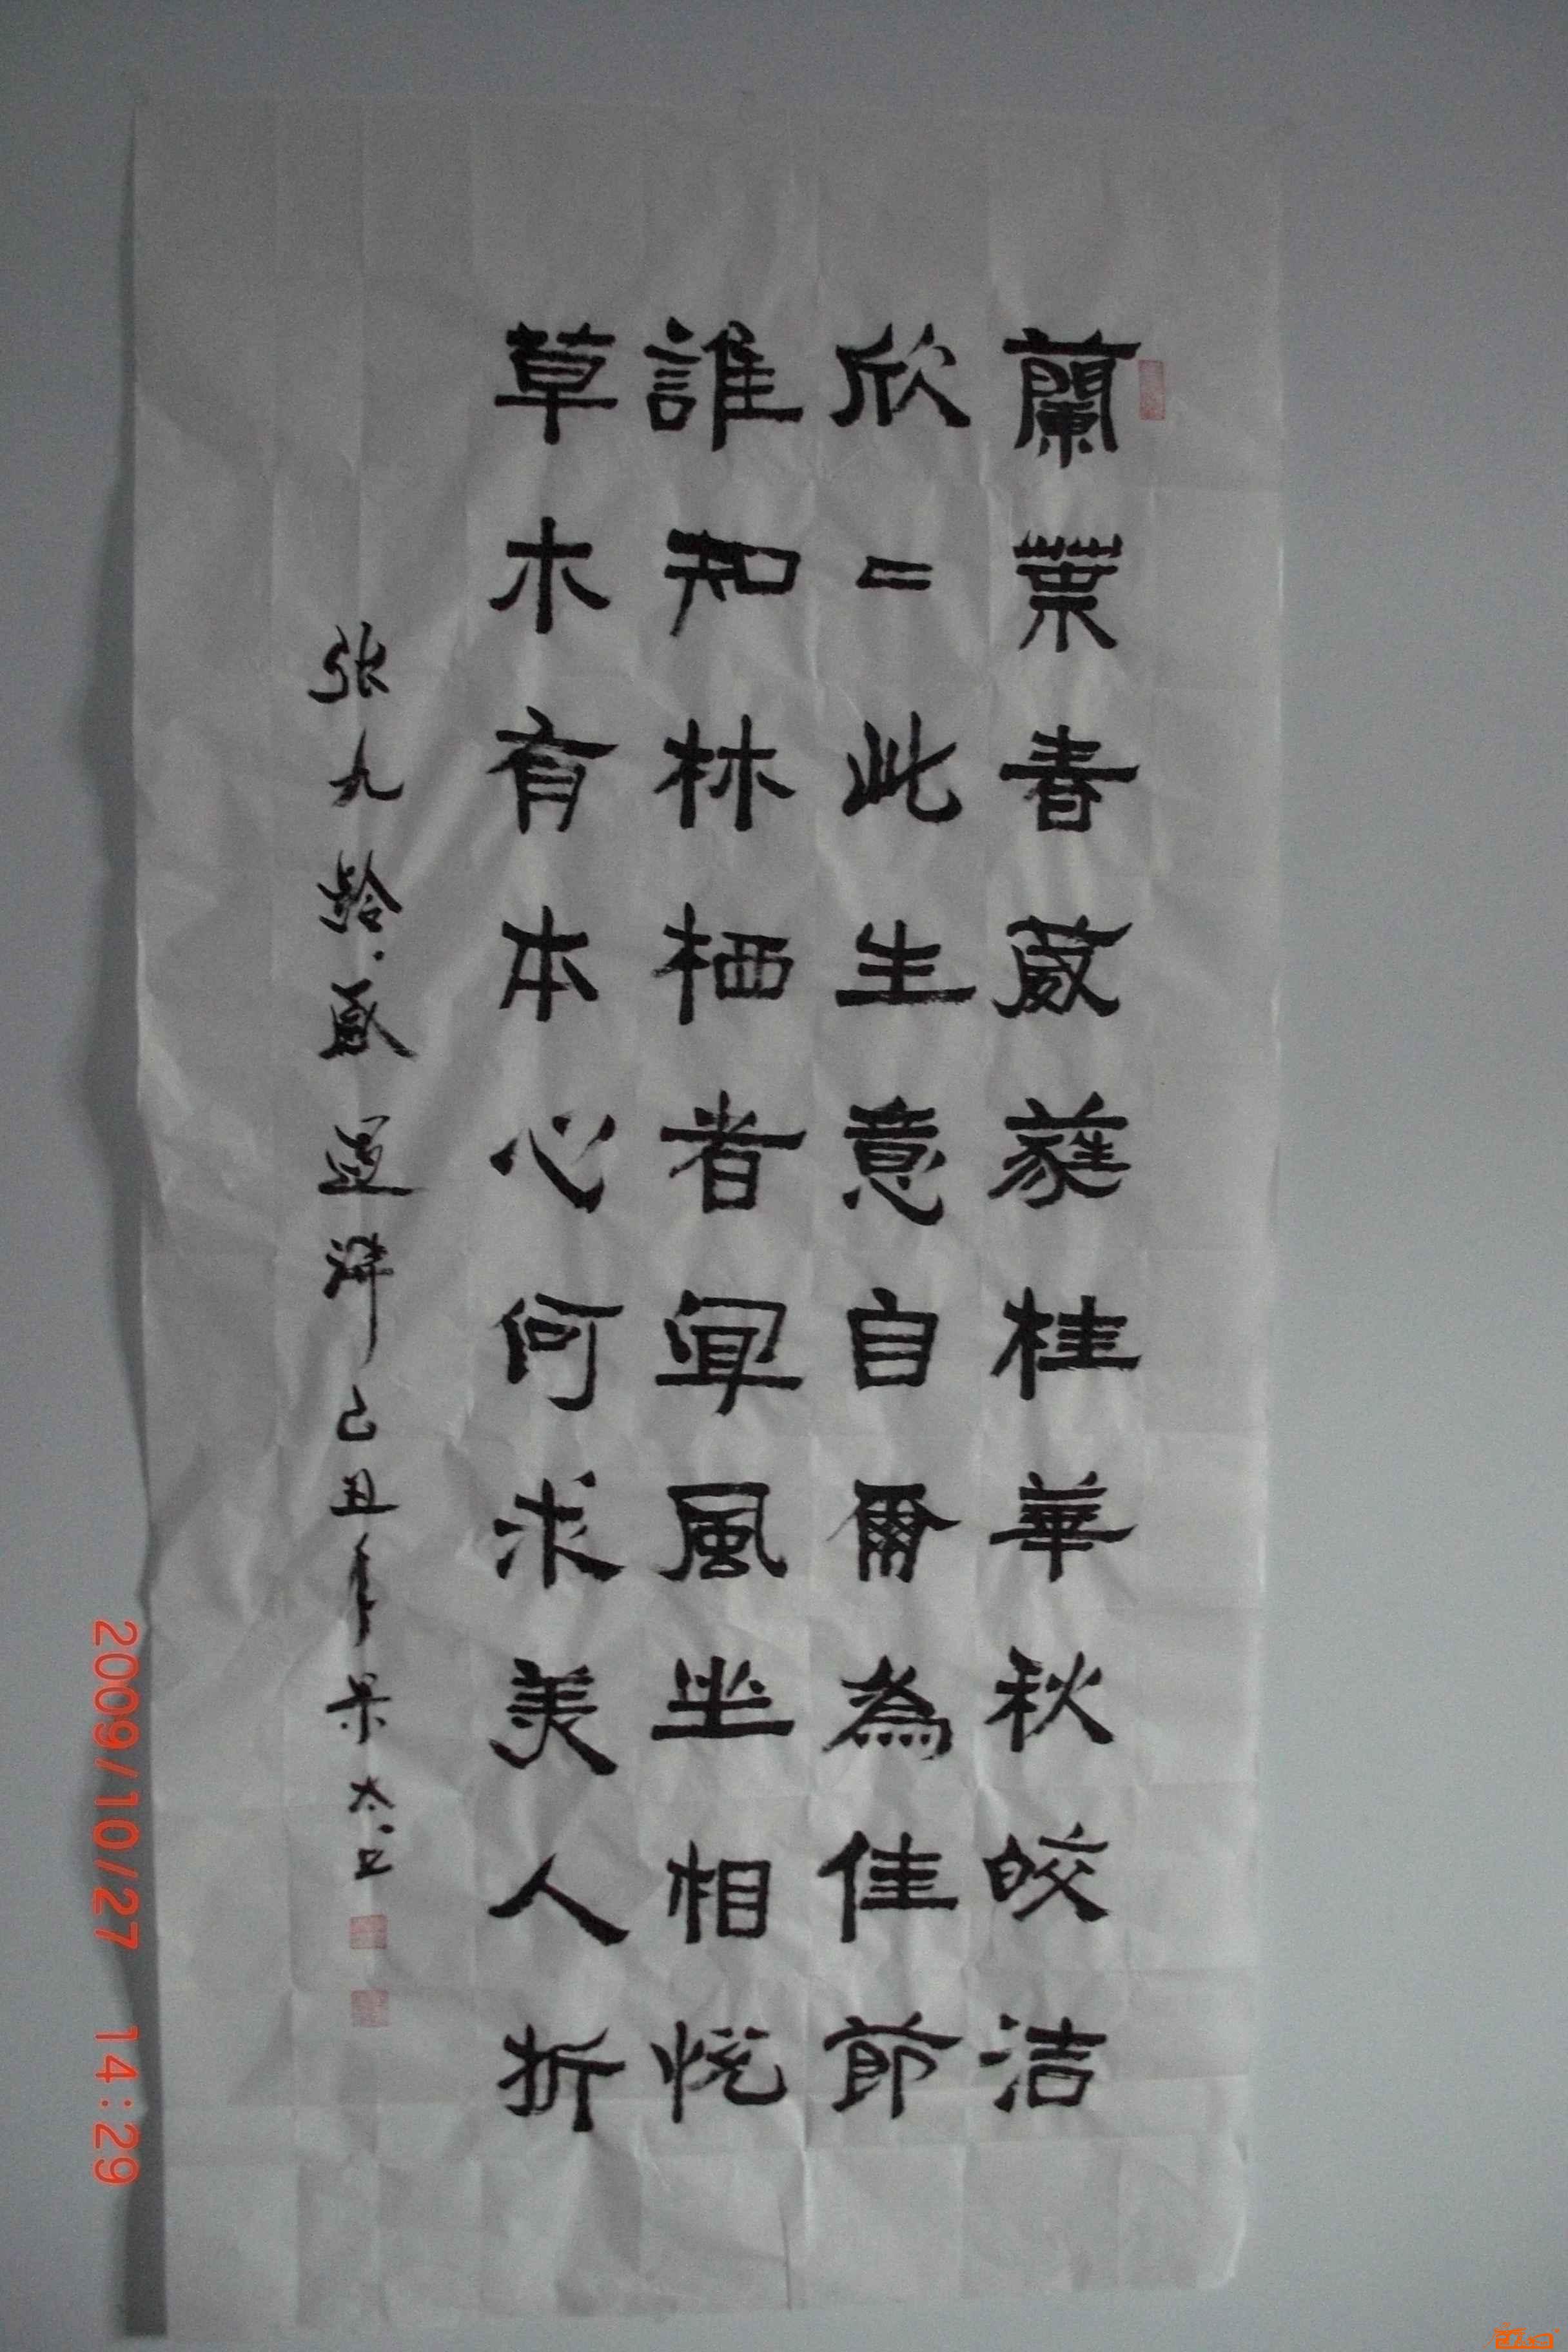 蘭葉春葳蕤桂華秋皎洁
欣=此生意自爾為佳節
誰知林栖者闻風坐相悦
草木有本心何求美人折
张九龄感遇诗己丑年
2009/10/27 14:29